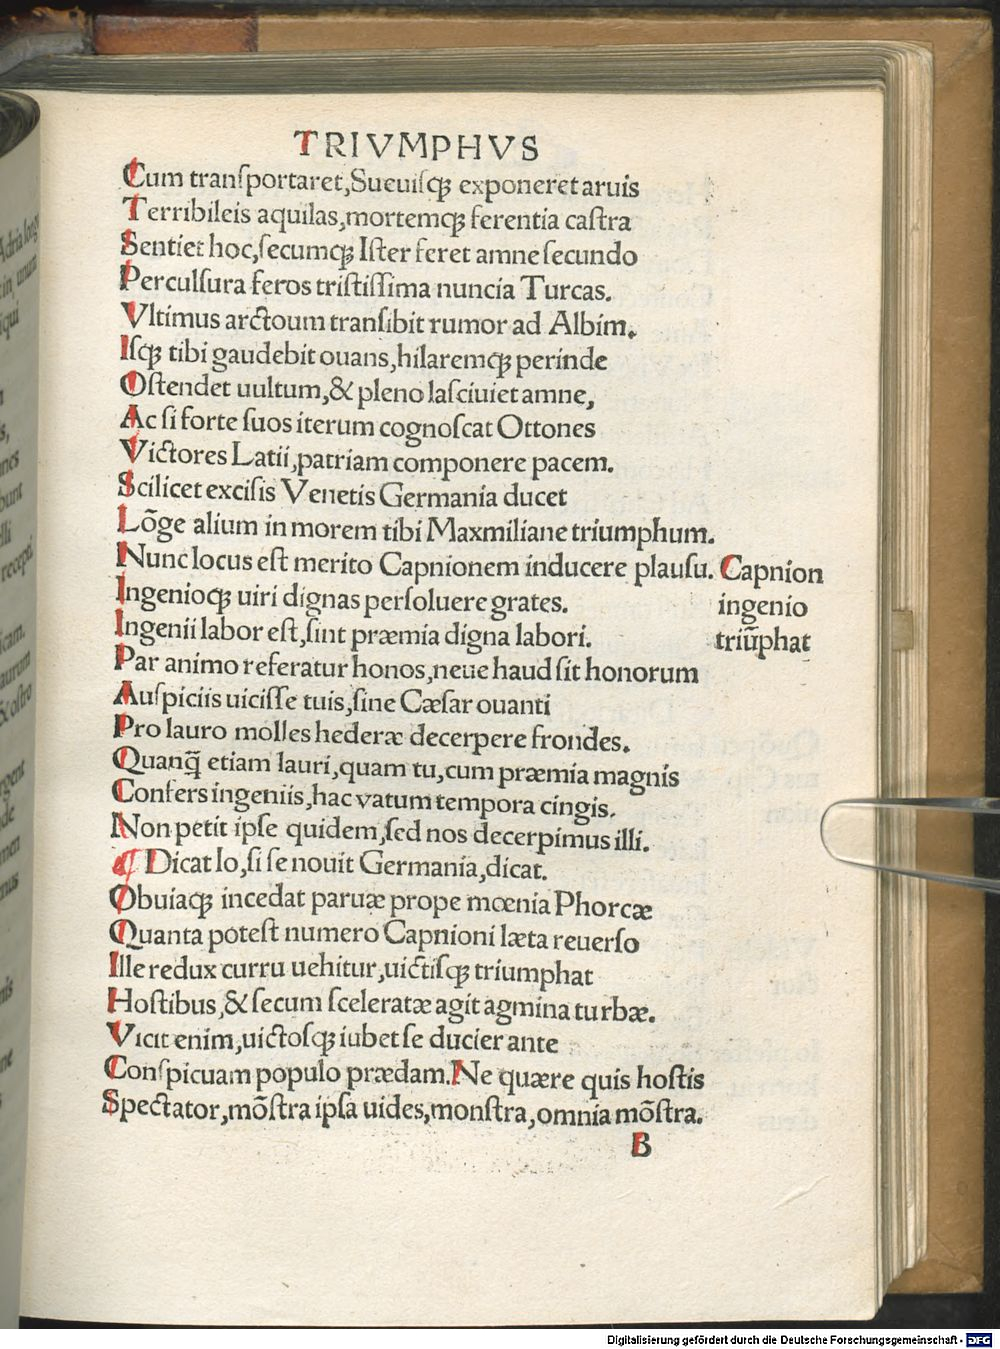 TRIVMPHVS
Cum tranſportaret,Sueuiſqȝ exponeret aruis
Terribileis aquilas,mortemqȝ ferentia caſtra
Sentiet hoc,ſecumqȝ Iſter feret amne ſecundo
Perculſura feros triſtiſſima nuncia Turcas.
Vltimus arctoum tranſibit rumor ad Albim.
Iſqȝ tibi gaudebit ouans,hilaremqȝ perinde
Oſtendet uultum,& pleno laſciuiet amne,
Ac ſi forte ſuos iterum cognoſcat Ottones
Victores Latii,patriam componere pacem.
Scilicet exciſis Venetis Germania ducet
Lõge alium in morem tibi Maxmiliane triumphum.
Nunc locus eſt merito Capnionem inducere plauſu. Capnion
Ingenioqȝ uiri dignas perſoluere grates. ingenio
Ingenii labor eſt,ſint præmia digna labori. triũphat
Par animo referatur honos,neue haud ſit honorum
Auſpiciis uiciſſe tuis,ſine Cæſar ouanti
Pro lauro molles hederæ decerpere frondes.
Quanq̃ etiam lauri,quam tu,cum præmia magnis
Confers ingeniis,hac vatum tempora cingis.
Non petit ipſe quidem,ſed nos decerpimus illi.
¶ Dicat Io,ſi ſe nouit Germania,dicat.
Obuiaqȝ incedat paruæ prope mœnia Phorcæ
Quanta poteſt numero Capnioni læta reuerſo
Ille redux curru uehitur,uictiſqȝ triumphat
Hoſtibus,& ſecum ſceleratæ agit agmina turbæ.
Vicit enim,uictoſqȝ iubet ſe ducier ante
Conſpicuam populo prædam.Ne quære quis hoſtis
Spectator,mõſtra ipſa uides,monſtra,omnia mõſtra.
B
Digitalisierung gefördert durch die Deutsche Forschungsgemeinschaft - DFG